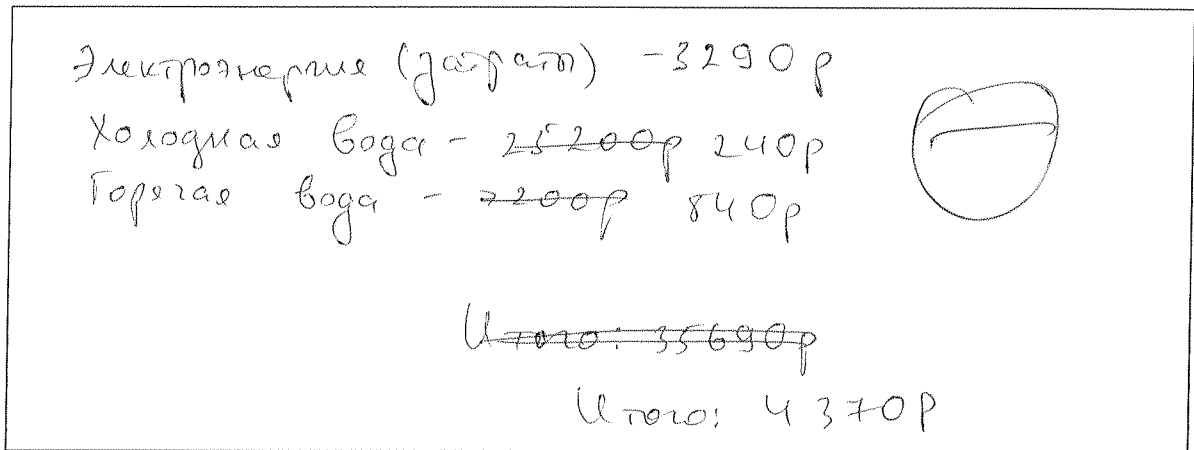 Электроэнергия (затраты) - 3290р
Холодная вода - 25200р 240р
Горячая вода - 7200р 840р
Итого: 35690р
Итого: 4370р